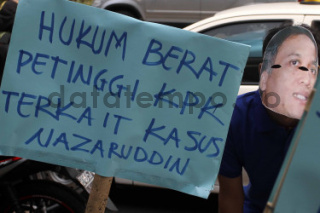 HUKUM BERAT
PETINGGI KPK
TERKAIT KASUS
NAZARUDDIN
datatempo.co